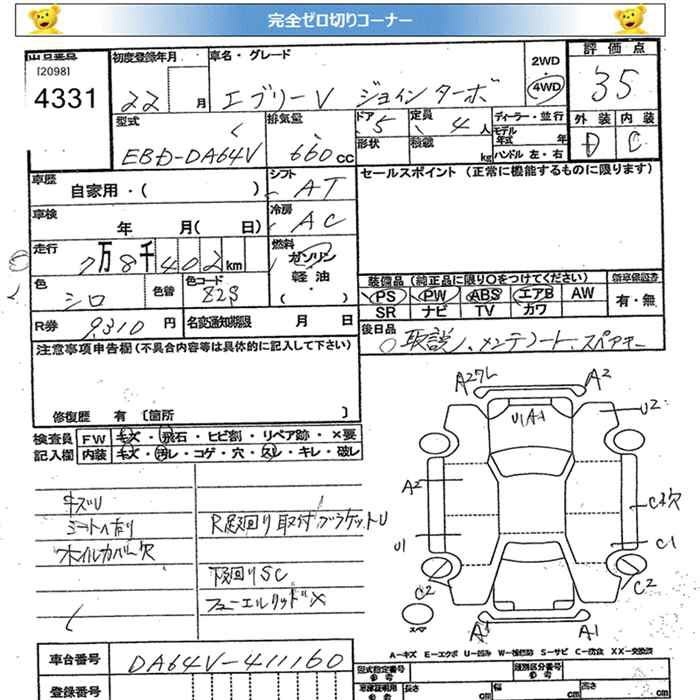 完全ゼロ切りコーナー
出品番号 初度登録年月 車名・グレード 2WD 評価点
[2098]
4331 22 月 エブリーV ジョインターボ 4WD 35
型式 排気量 ドア 5 定員 4人 ディーラー・並行 外装 内装
EBD-DA64V 660cc 形状 積載 kg モデル年式 年 D C
ハンドル 左・右
車歴 自家用・( ) シフト AT セールスポイント (正常に機能するものに限ります)
車検 年 月( 日) 冷房 AC
走行 7万8千402km 燃料 ガソリン 軽油 ( )
色 シロ 色替 色コード Z2S 装備品 (純正品に限り○をつけてください) 新車保証書
PS PW ABS エアB AW 有・無
SR ナビ TV カワ
R券 9,310円 名変通知期限 月 日 後日品
取説、メンテノート、スペアキー
注意事項申告欄(不具合内容等は具体的に記入して下さい)
修復歴 有 [箇所 ]
検査員 FW キズ・飛石・ヒビ割・リペア跡・×要
記入欄 内装 キズ・汚レ・コゲ・穴・スレ・キレ・破レ
キズU
シートヘタリ R足廻り取付ブラケットU
ホイルカバー欠
下廻りSC
フューエルリッド×
A2 A2
U(A-1 U2
A2
U1 C1
C2 C2
スペア A1
A-キズ E-エクボ U-凹み W-補修跡 S-サビ C-腐食 XX-交換済
車台番号 DA64V-411160 型式指定番号 類別区分番号
登録番号 長さ cm 幅 cm 高さ cm